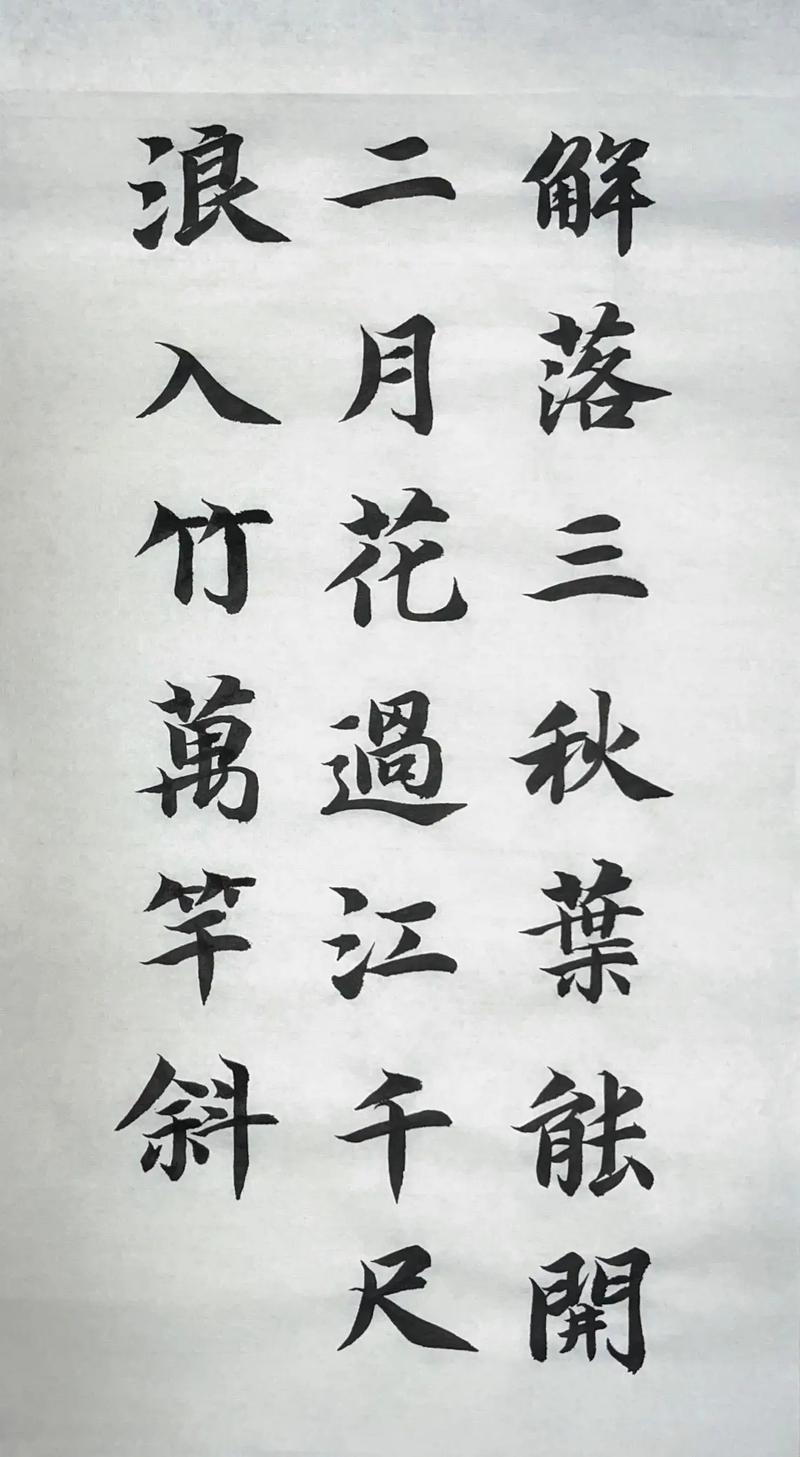 解落三秋葉能開
二月花過江千尺
浪入竹萬竿斜